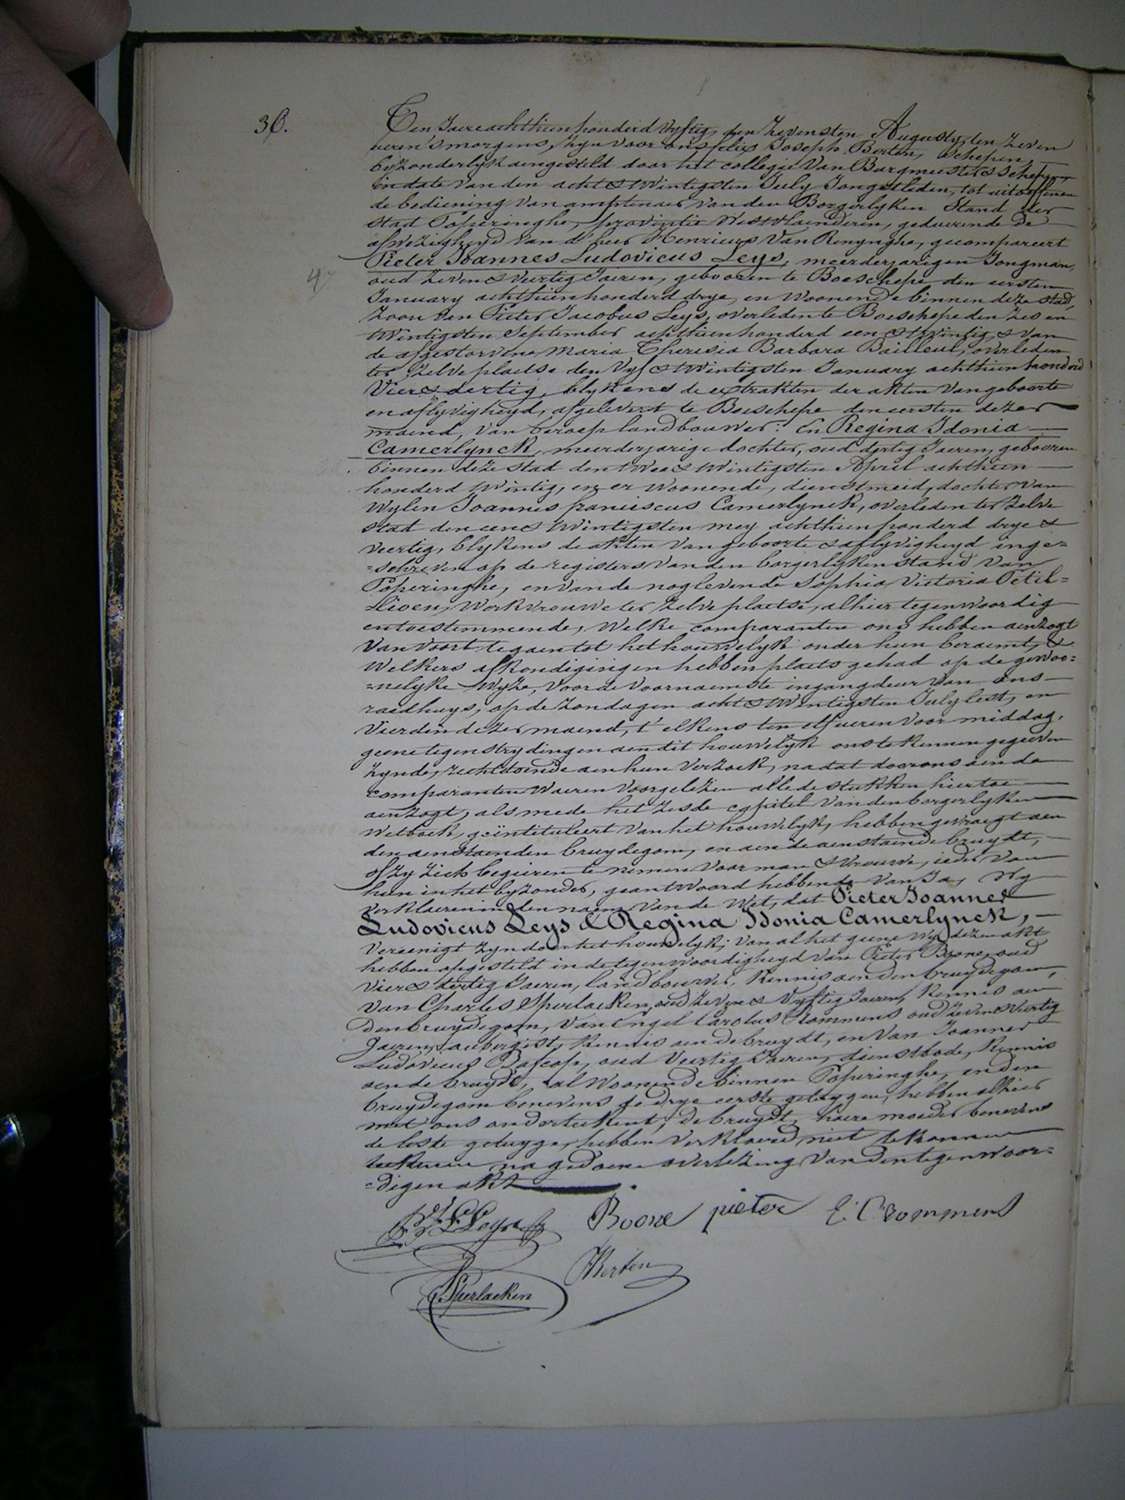 36.
Ten Jaere achthien honderd vyftig, den Zevensten Augusty, ten Zeven
ueren 'smorgens, zyn voor ons felix Joseph Berten, Schepen,
byzonderlyk aengesteld door het collegie van Burgmeester & Schepen
in date van den acht & twintigsten July Jongstleden, tot uitoeffenen
de bediening van amptenaer van den Borgerlyken Stand der
Stad Poperinghe, provintie Westvlaenderen, geduerende de
afwezigheyd van d'heer Henricus Van Renynghe, gecompareert
Pieter Joannes Ludovicus Leys, meerderjarigen Jongman,
oud Zeven & veertig Jaeren, gebooren te Boeschepe den eersten
January achthien honderd drye, en woonende binnen deze stad,
Zoon van Pieter Jacobus Leys, overleden te Boeschepe den Zes en
twintigsten September achthien honderd een & twintig, & van
de afgestorvene Maria Theresia Barbara Bailleul, overleden
ter Zelve plaetse den vyf & twintigsten January achthien honderd
Vier & dertig, blykens de extrakten der akten van geboorte
en aflyvigheyd, afgelevert te Boeschepe den eersten dezer
maend, van beroep landbouwer: en Regina Idonia
Camerlynck, meerderjarige dochter, oud dertig Jaeren, gebooren
binnen deze stad den twee & twintigsten April achthien
honderd twintig, en er woonende, dienstmeid, dochter van
wylen Joannes franciscus Camerlynck, overleden ter Zelve
Stad den een & twintigsten mey achthien honderd drye &
veertig, blykens de akten van geboorte & aflyvigheyd inge=
=schreven op de registers van den borgerlyken stand van
Poperinghe, en van de noglevende Sophia Victoria Petil=
=lioen, werkvrouwe ter Zelve plaetse, alhier tegenwoordig
en toestemmende, welke comparanten ons hebben aenzogt
van voort te gaen tot het houwelyk onder hun beraemt, &
welkers afkondigingen hebben plaets gehad op de gewoo=
=nelyke wyze, voor de voornaemste ingangdeur van ons
raedhuys, op de Zondagen acht & twintigsten July lest, en
vierden dezer maend, t'elkens ten elf ueren voor middag,
geene tegenstrydingen aen dit houwelyk ons te kennen gegeven
zynde, rechtdoende aen hun verzoek, na dat door ons aen de
comparanten waeren voorgelezen alle de stukken hiertoe
aenzogt, als mede het Zesde capitel van den borgerlyken
wetboek, geïntituleert van het houwelyk, hebben gevraegt aen
den aenstaenden bruydegom, en aen de aenstaende bruydt,
of Zy Zich begieren te nemen voor man & vrouwe, ieder van
hun in het byzonder, geantwoord hebbende van Ja, Wy
verklaeren in den naem van de Wet, dat Pieter Joannes
Ludovicus Leys & Regina Idonia Camerlynck,
Vereenigt Zyn door het houwelyk; van al het geene wy dezen akt
hebben opgesteld in de tegenwoordigheyd van Pieter Boone, oud
vier & dertig Jaeren, landbouwer, kennis aen den bruydegom,
van Charles Sperlaeken, oud Zeven & vyftig Jaeren, kennis aen
den bruydegom, van Engel Carolus Crommens oud Zeven & veertig
Jaeren, aubergist, kennis aen de bruydt, en van Joannes
Ludovicus Bascop, oud veertig Jaeren, dienstbode, kennis
aen de bruydt, al woonende binnen Poperinghe, en den
bruydegom benevens de drye eerste getuygen, hebben alhier
met ons onderteekent; de bruydt, haere moeder benevens
de leste getuyge, hebben verklaerd niet te konnen
teekenen, na gedaene overlezing van den tegenwoor=
=digen akt
P. J. L. Leys Boone pieter E: Crommens
C. Sperlaeken FBerten